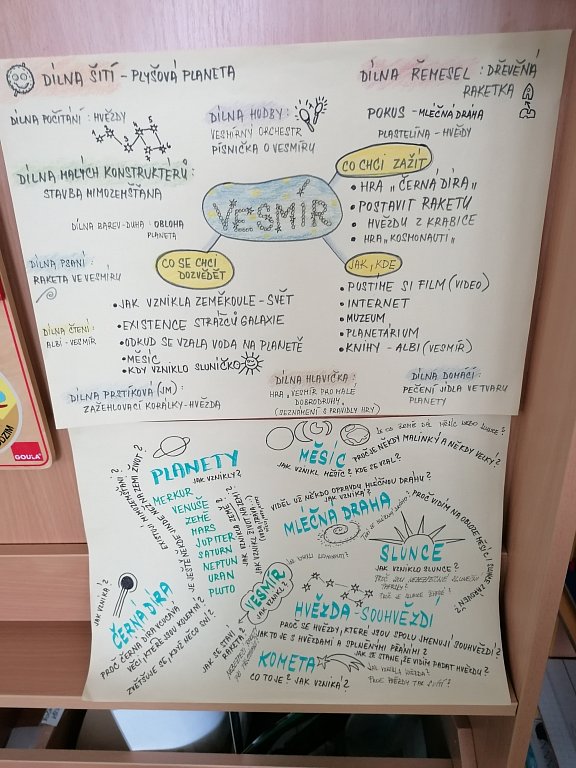 DÍLNA ŠITÍ - PLYŠOVÁ PLANETA
DÍLNA ŘEMESEL: DŘEVĚNÁ
RAKETKA
DÍLNA POČÍTÁNÍ: HVĚZDY
DÍLNA HUDBY:
VESMÍRNÝ ORCHESTR
PÍSNIČKA O VESMÍRU
POKUS - MLÉČNÁ DRÁHA
PLASTELÍNA - HVĚDY
DÍLNA MALÝCH KONSTRUKTÉRŮ:
STAVBA MIMOZEMŠŤANA
CO CHCI ZAŽÍT
• HRA „ČERNÁ DÍRA„
• POSTAVIT RAKETU
• HVĚZDU Z KRABICE
• HRA „KOSMONAUTI„
VESMÍR
DÍLNA BAREV-DUHA: OBLOHA
PLANETA
DÍLNA PSANÍ:
RAKETA VE VESMÍRU
CO SE CHCI
DOZVĚDĚT
• JAK VZNIKLA ZEMĚKOULE - SVĚT
• EXISTENCE STRÁŽCŮ GALAXIE
• ODKUD SE VZALA VODA NA PLANETĚ
• MĚSÍC
• KDY VZNIKLO SLUNÍČKO
JAK, KDE
• PUSTÍME SI FILM (VIDEO)
• INTERNET
• MUZEUM
• PLANETÁRIUM
• KNIHY - ALBI (VESMÍR)
DÍLNA ČTENÍ:
ALBI - VESMÍR
DÍLNA PRSTÍKOVÁ (JM):
ZAŽEHLOVACÍ KORÁLKY - HVĚZDA
DÍLNA HLAVIČKA:
HRA „VESMÍR PRO MALÉ
DOBRODRUHY„
(SEZNÁMENÍ S PRAVIDLY HRY)
DÍLNA DOMÁCÍ:
PEČENÍ JÍDLA VE TVARU
PLANETY
GOULA
PLANETY
JAK VZNIKLY?
MERKUR
VENUŠE
ZEMĚ
MARS
JUPITER
SATURN
NEPTUN
URAN
PLUTO
EXISTUJÍ MIMOZEMŠŤANÉ?
JE JEŠTĚ NĚKDE JINDE NEŽ NA ZEMI ŽIVOT?
JAK VZNIKLA ZEMĚ?
JAK VZNIKL ŽIVOT NA ZEMI?
MĚSÍC
JAK VZNIKL MĚSÍC? KDE SE VZAL?
PROČ JE NĚKDY MALINKÝ A NĚKDY VELKÝ?
VIDĚL UŽ NĚKDO OPRAVDU MLÉČNOU DRÁHU?
JAK VZNIKLA?
MLÉČNÁ DRÁHA
SLUNCE
JAK VZNIKLO SLUNCE?
PROČ JSOU NEBEZPEČNÉ SLUNEČNÍ
PAPRSKY?
ČERNÁ DÍRA
JAK VZNIKÁ?
PROČ ČERNÁ DÍRA VCUCÁVÁ
VĚCI, KTERÉ JSOU KOLEM NÍ?
ZVĚTŠUJE SE, KDYŽ NĚCO SNÍ?
VESMÍR
JAK VZNIKL?
JAK SE STAVÍ
RAKETA?
HVĚZDA - SOUHVĚZDÍ
PROČ SE HVĚZDY, KTERÉ JSOU SPOLU JMENUJÍ SOUHVĚZDÍ?
JAK TO JE S HVĚZDAMI A SPLNĚNÝMI PŘÁNÍMI?
JAK SE STANE, ŽE VIDÍM PADAT HVĚZDU?
KOMETA
CO TO JE? JAK VZNIKÁ?
JAK VZNIKLA HVĚZDA?
PROČ HVĚZDY TAK SVÍTÍ?